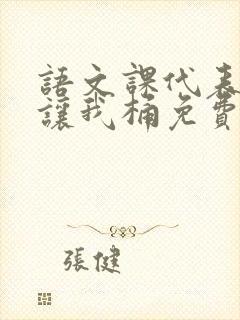 語文課代表
讓我桶免費
張健